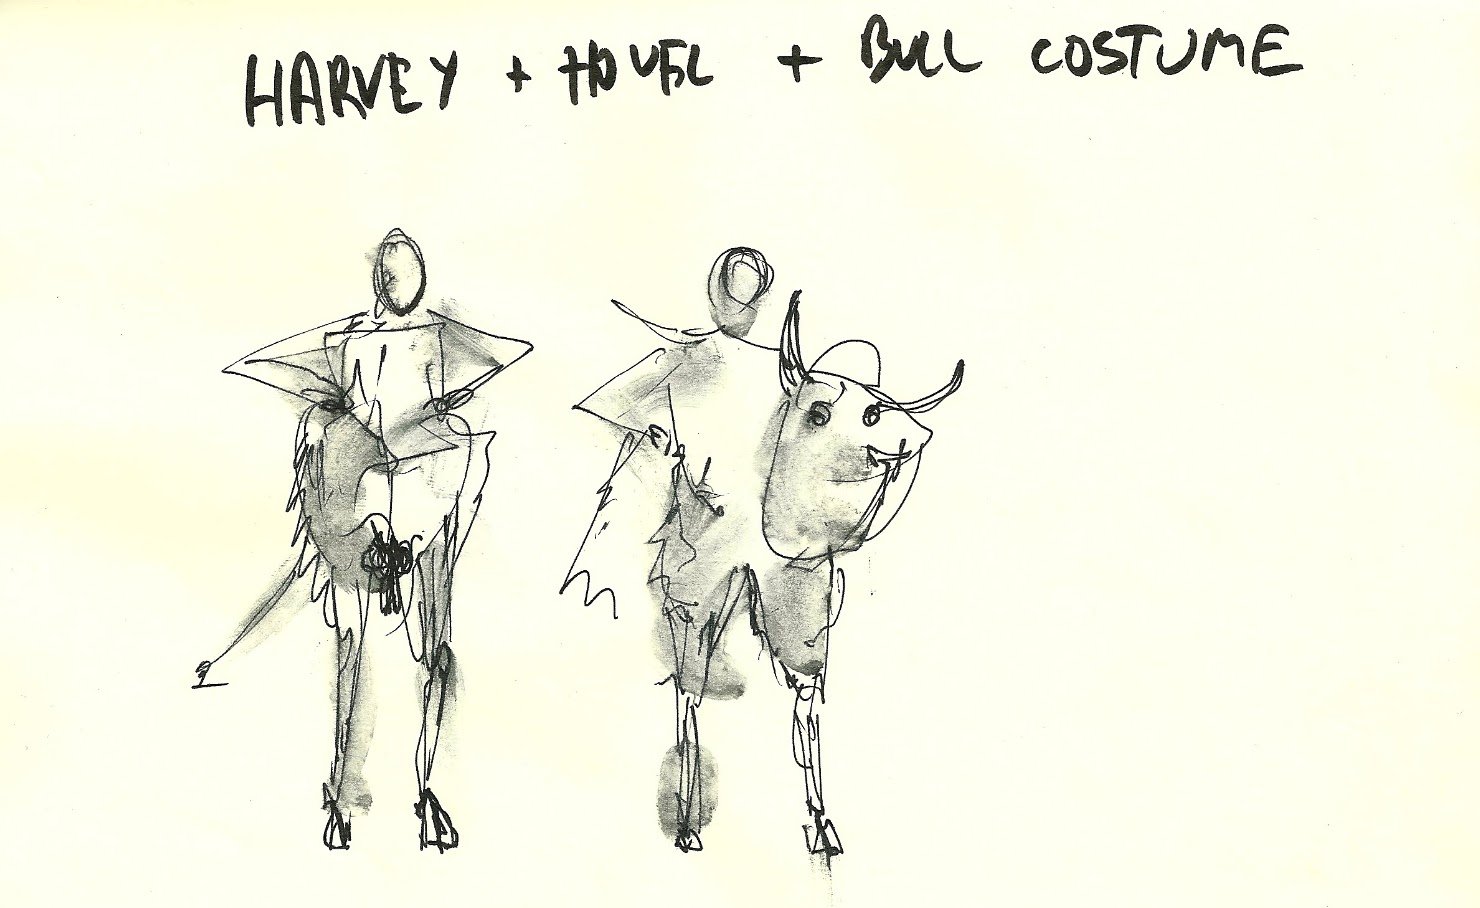 HARVEY + HOVEL + BULL COSTUME